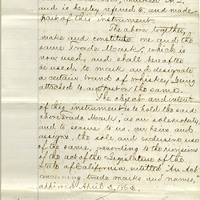 and is hereby referred to, and made
part of this instrument.
The above, together,
make and constitute one and the
same Trade Mark, which is
now used, and shall hereafter
be used, to mark and designate
a certain brand of whiskey, being
attached to and upon the same.
The object and intent
of this instrument is to hold the said
above Trade Mark, as our sole property,
and to secure to us, our heirs and
assigns, the sole and exclusive use
of the same, according to the provisions
of the act of the Legislature of the
State of California, entitled "An Act
concerning trade marks and names,"
approved April 3, 1863.